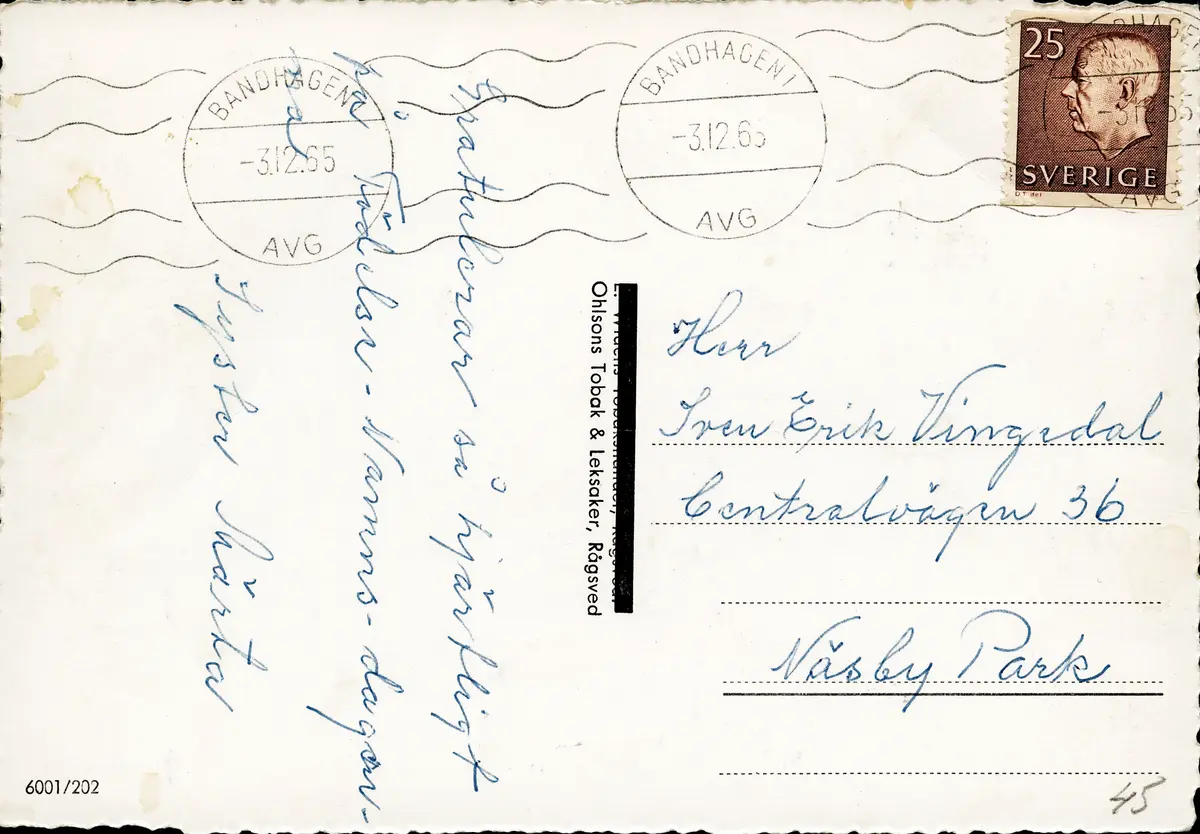 Gratulerar så hjärtligt
på Födelse-Namns-dagar-
na
Syster Märta
BANDHAGEN 1
-3.12.65
AVG
BANDHAGEN 1
-3.12.65
AVG
25
SVERIGE
-3.12.65
AVG
Ohlsons Tobak & Leksaker, Rågsved
Herr
Sven Erik Vingedal
Centralvägen 36
Näsby Park
6001/202
45